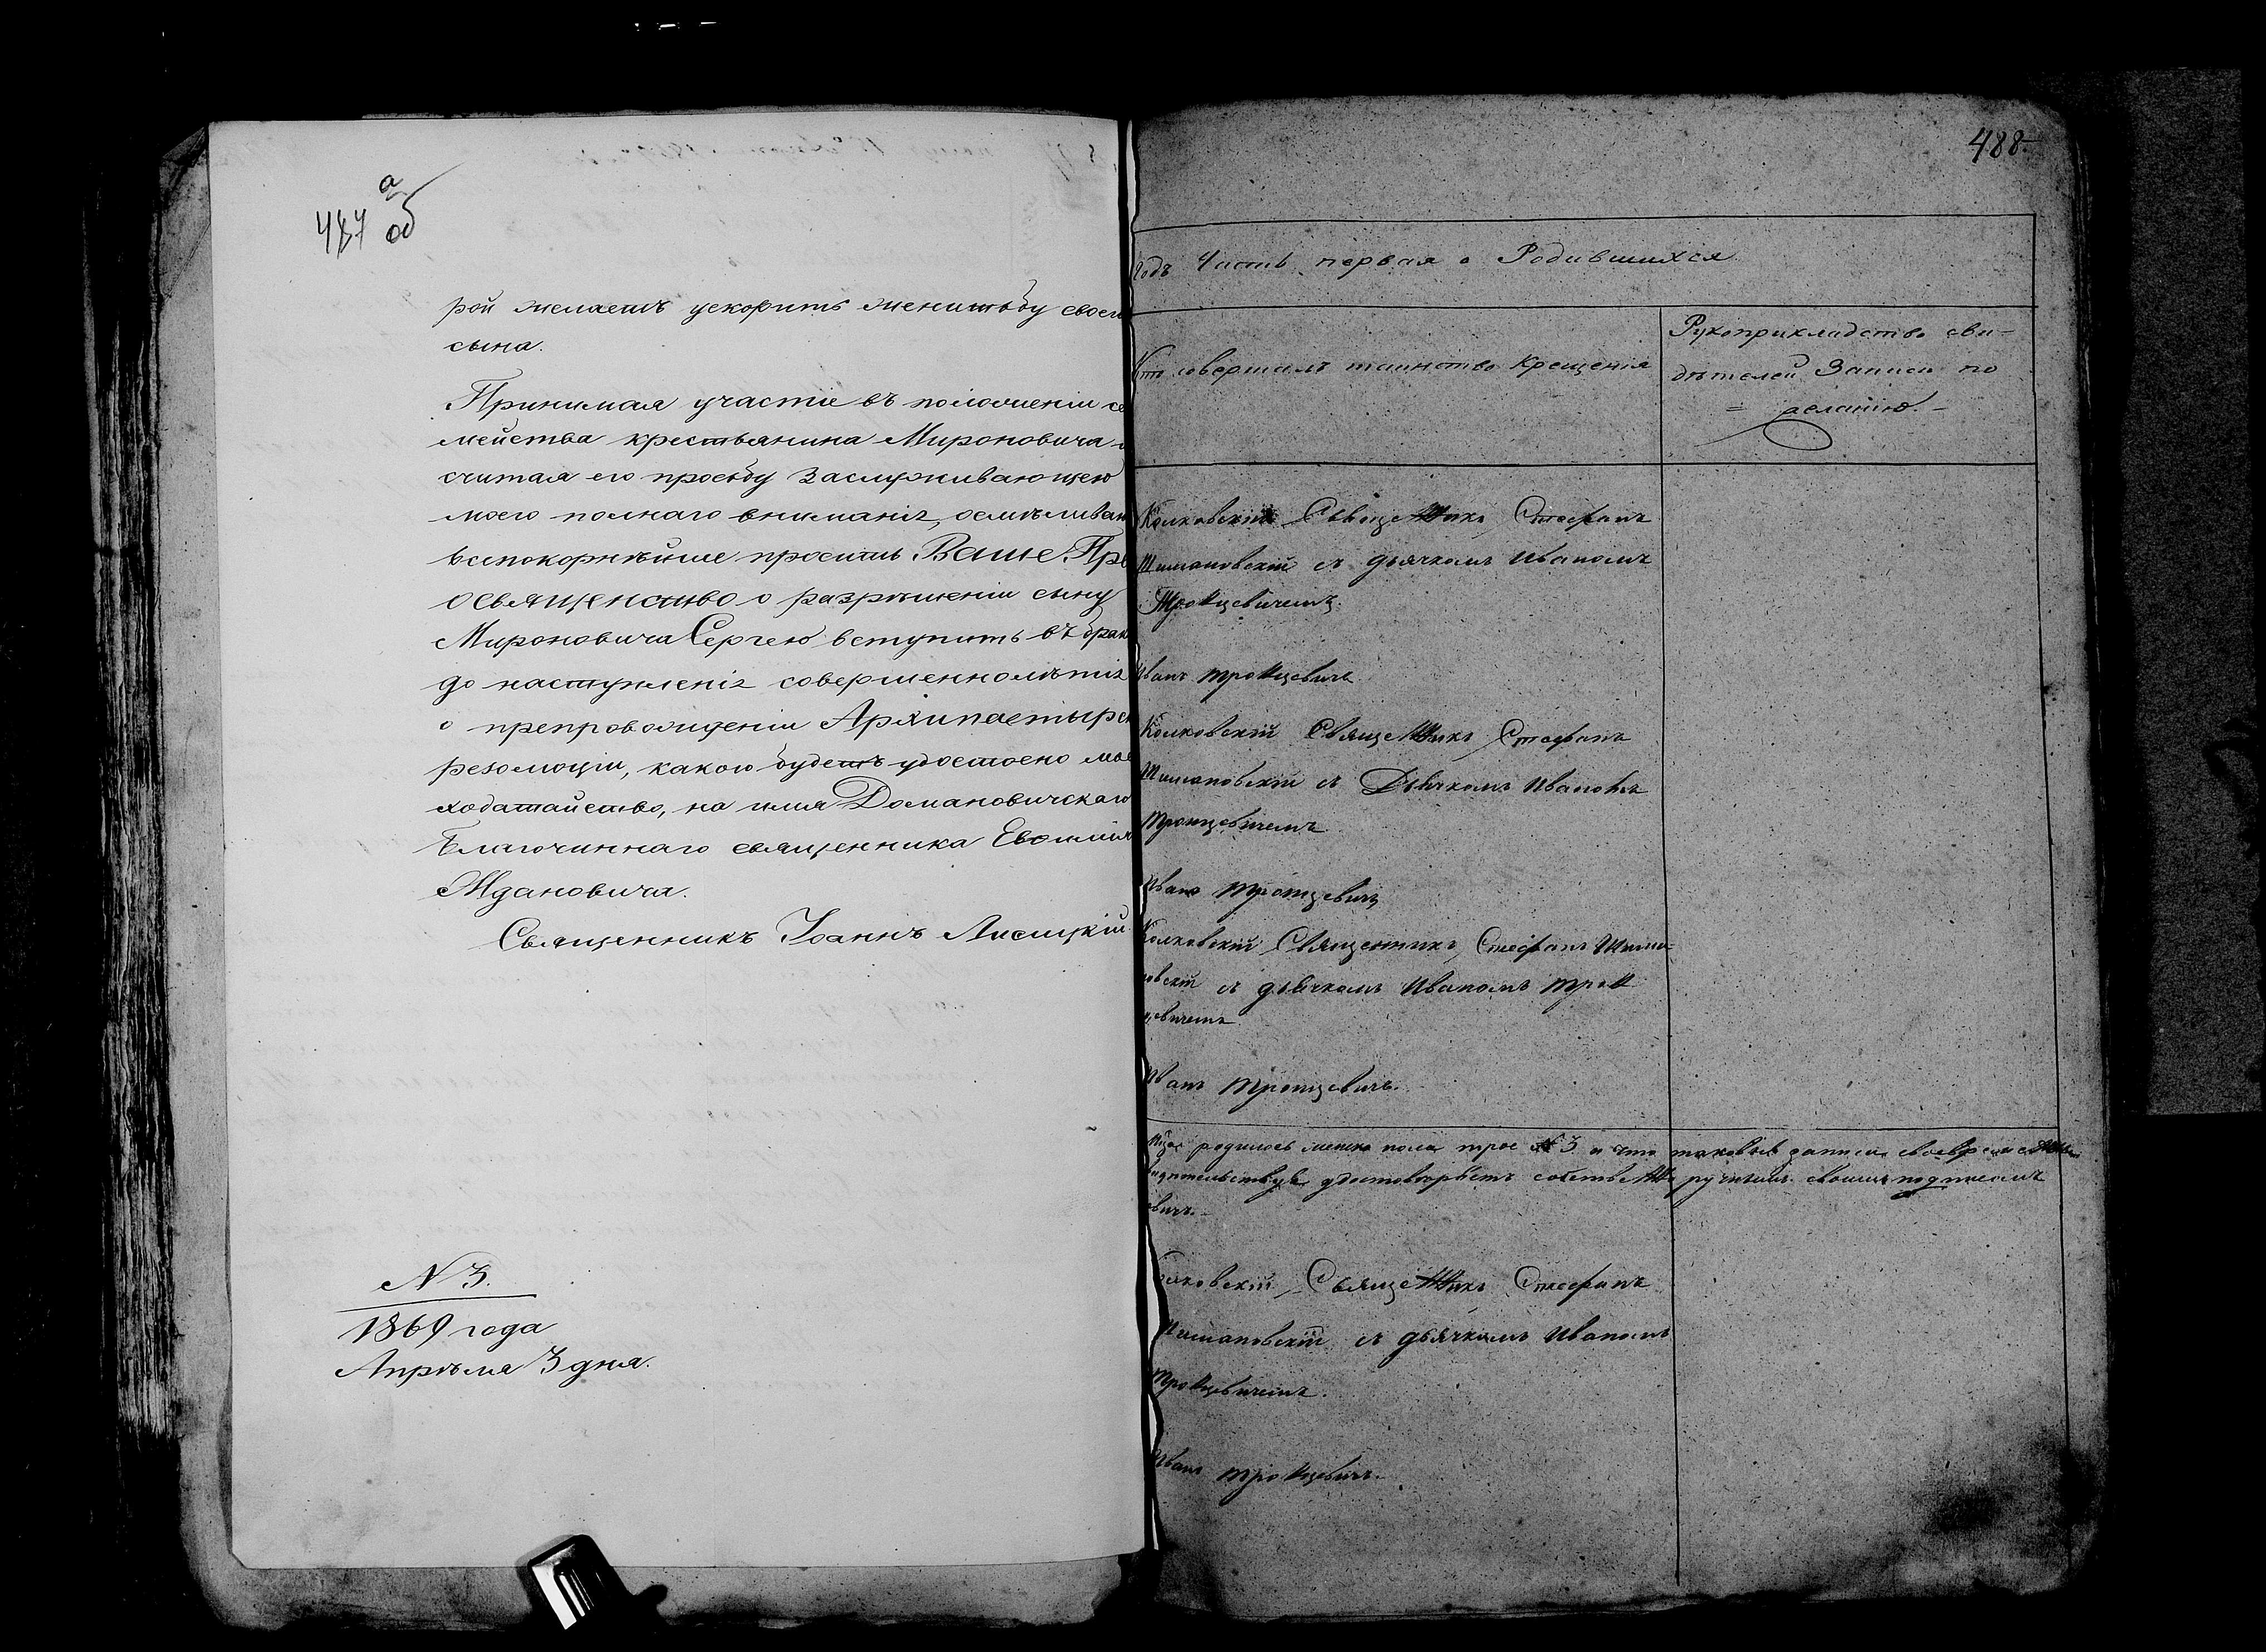 487 а об
рой желаетъ ускорить женитьбу своего
сына.
Принимая участіе въ положеніи се
мейства крестьянина Мироновича и
считая его просьбу заслуживающею
моего полнаго вниманія, осмѣливаю
всепокорнѣйше просить Ваше Пре
освященство о разрѣшеніи сыну
Мироновича Сергею вступить въ брак
до наступленія совершеннолѣтія
о препровожденіи Архипастырск
резолюціи, какою будетъ удостоено мое
ходатайство, на имя Домановичскаго
Благочиннаго священника Евфимія
Ждановича.
Священникъ Іоаннъ Лисицкій
N 3.
1869 года
Апрѣля 3 дня.
488
Годъ Часть первая о Родившихся
Кто совершалъ таинство Крещенія
Рукоприкладство сви-
дѣтелей Записи по
= желанію. -
Колковскій Священникъ Стефанъ
Шимановскій съ дьячкомъ Иваномъ
Тройцевичемъ.
Иванъ Тройцевичъ
Колковскій Священникъ Стефанъ
Шимановскій съ Дьячкомъ Иваномъ
Тройцевичемъ
Иванъ Тройцевичъ
Колковскій Священникъ Стефанъ Шима-
новскій съ дьячкомъ Иваномъ Трой
цевичемъ
Иванъ Тройцевичъ.
родилось женска пола трое № 3 и что таковыя записи
удостовѣряетъ своимъ подписомъ
овичъ.
Колковскій Священникъ Стефанъ
Шимановскій съ дьячкомъ Иваномъ
Тройцевичемъ.
Иванъ Тройцевичъ.